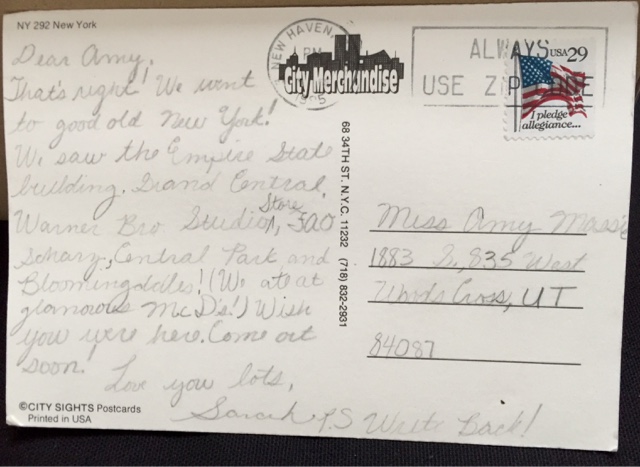 NY 292 New York
Dear Amy,
That's right! We went
to good old New York!
We saw the Empire State
building, Grand Central,
Warner Bro. Studio Store, FAO
Schwarz, Central Park and
Bloomingdales! (We ate at
glamorous McD's!) Wish
you were here. Come out
soon!
Love you lots,
Sarah P.S Write Back!
©CITY SIGHTS Postcards
Printed in USA
City Merchandise
68 34TH ST. N.Y.C. 11232 (718) 832-2931
NEW HAVEN,
PM
ALWAYS
USE ZIP CODE
USA 29
I pledge
allegiance...
Miss Amy
1883 S., 835 West
Woods Cross, UT
84087